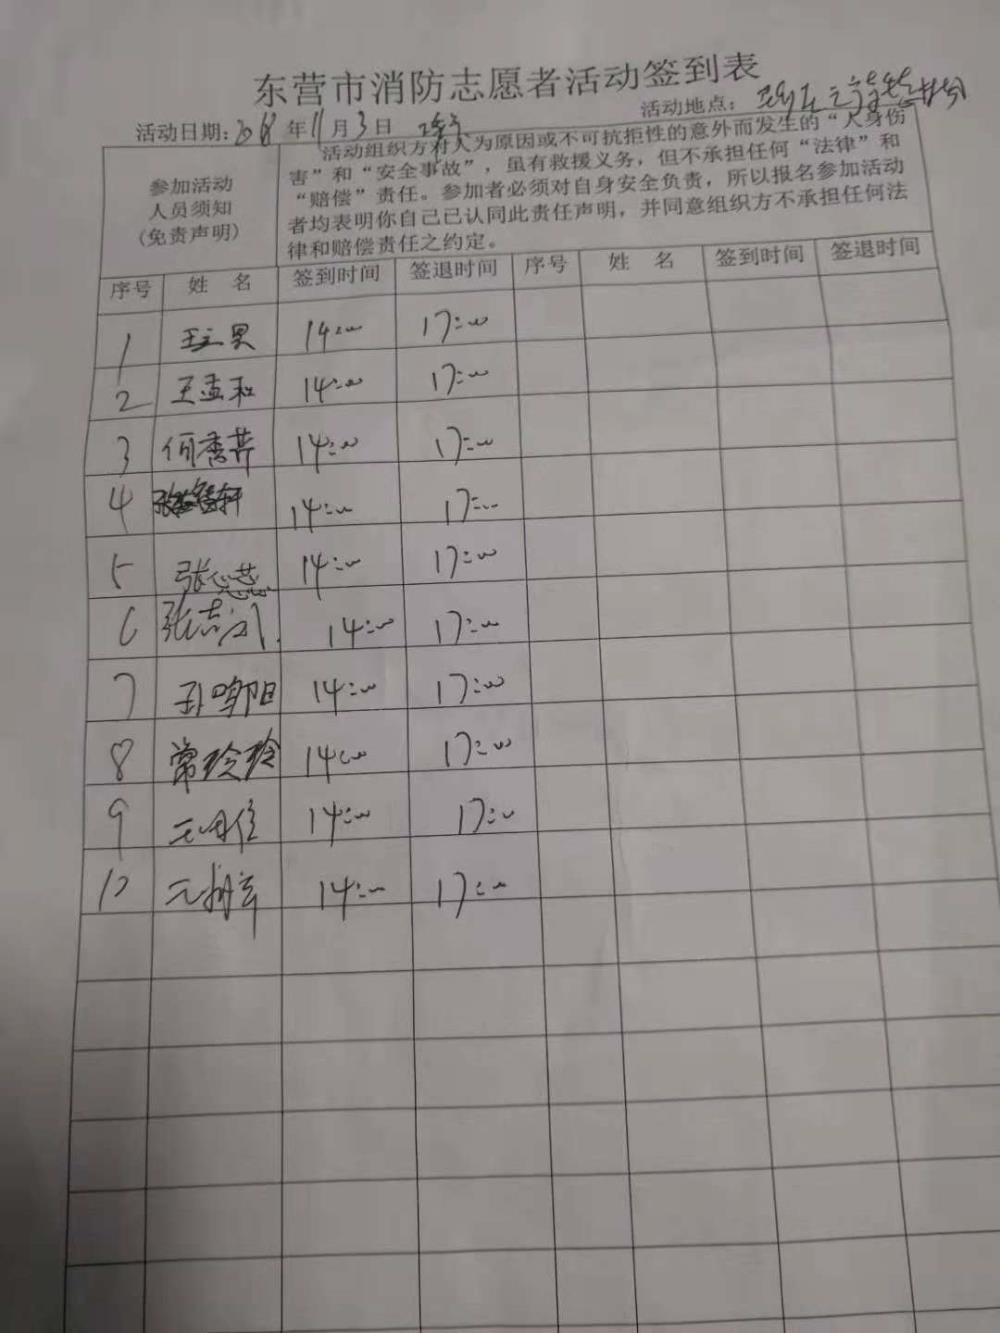 东营市消防志愿者活动签到表
活动日期：2018年11月3日 活动地点：
参加活动
人员须知
(免责声明)
活动组织方对人为原因或不可抗拒性的意外而发生的“人身伤
害”和“安全事故”，虽有救援义务，但不承担任何“法律”和
“赔偿”责任。参加者必须对自身安全负责，所以报名参加活动
者均表明你自己已认同此责任声明，并同意组织方不承担任何法
律和赔偿责任之约定。
序号 姓 名 签到时间 签退时间 序号 姓 名 签到时间 签退时间
1 14:00 17:00
2 王孟和 14:00 17:00
3 何秀芹 14:00 17:00
4 14:00 17:00
5 14:00 17:00
6 14:00 17:00
7 孙鸣阳 14:00 17:00
8 常玲玲 14:00 17:00
9 14:00 17:00
10 14:00 17:00